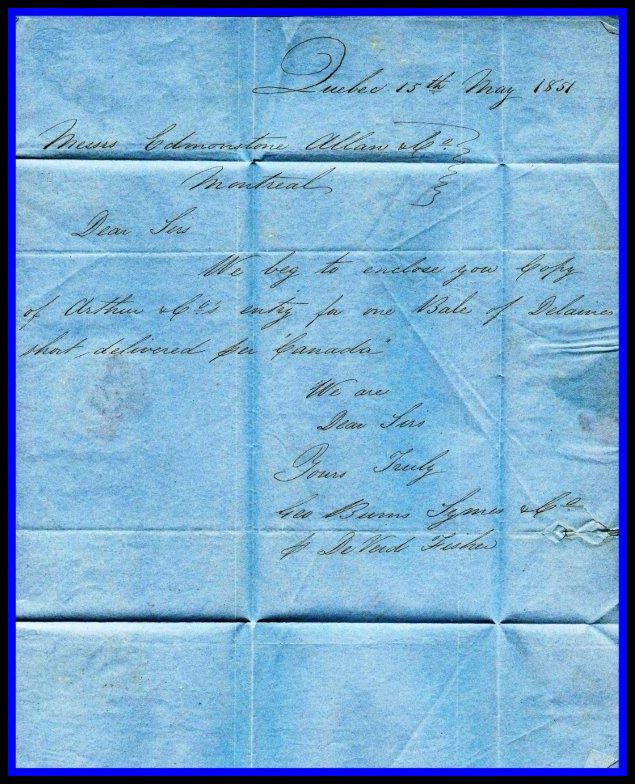 Quebec 15th May 1851
Messrs Edmonstone Allan & Co
Montreal
Dear Sirs
We beg to enclose you Copy
of Arthur & Co's entry for one Bale of Delaines
short delivered per "Canada"
We are
Dear Sirs
Yours Truly
Geo Burns Symes & Co
p Fisher